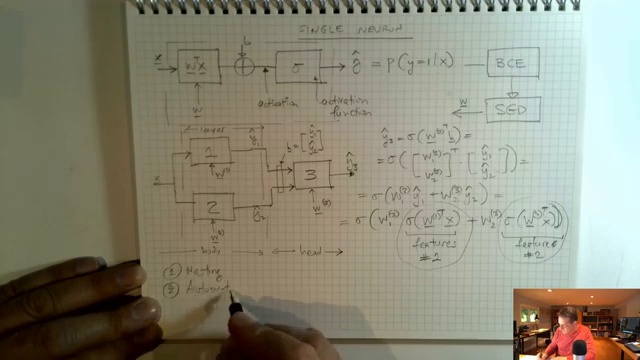 SINGLE NEURON
b
x
wᵀx
+
σ
ŷ = p(y=1|x)
BCE
w
activation
activation function
w
SGD
layer
ŷ₁
b = [ŷ₁ ŷ₂]
1
w⁽¹⁾
3
ŷ₃
w⁽³⁾
x
2
w⁽²⁾
ŷ₂
body
head
ŷ₃ = σ(w⁽³⁾ᵀ b)
= σ([w₁⁽³⁾ w₂⁽³⁾]ᵀ [ŷ₁ ŷ₂]) =
= σ(w₁⁽³⁾ ŷ₁ + w₂⁽³⁾ ŷ₂) =
= σ(w₁⁽³⁾ σ(w⁽¹⁾ᵀ x) + w₂⁽³⁾ σ(w⁽²⁾ᵀ x))
features #2
features #2
① Nesting
②